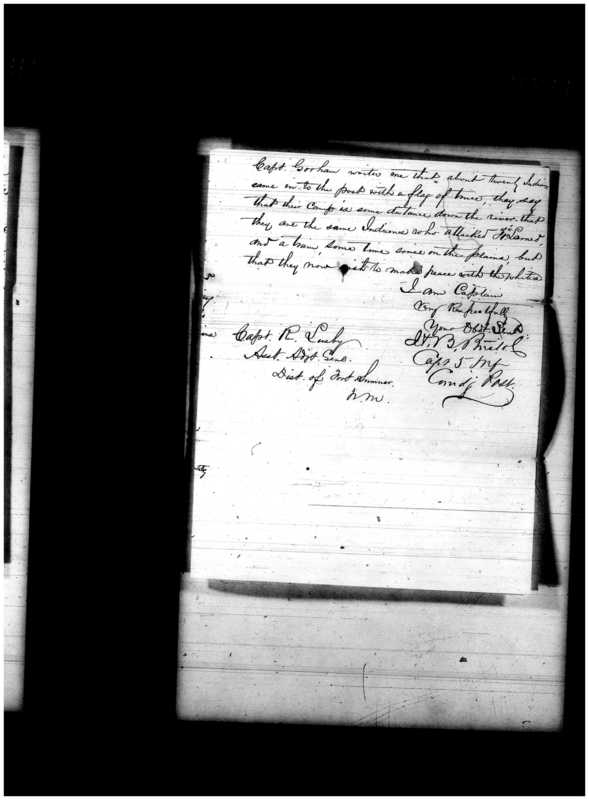 Capt. Gorham writes me that about twenty Indians
came in to the post with a flag of truce, they say
that their Camp is some distance down the river that
they are the same Indians who attacked Ft Larned
and a train some time since on the plains, but
that they now wish to make peace with the whites
I am Captain
Very Respectfull
Your Obt Servt
H. B. Bristol
Capt 5 Inf
Comdg Post
Capt. R. Lusby
Asst. Adjt. Genl.
Dist. of Fort Sumner.
N.M.